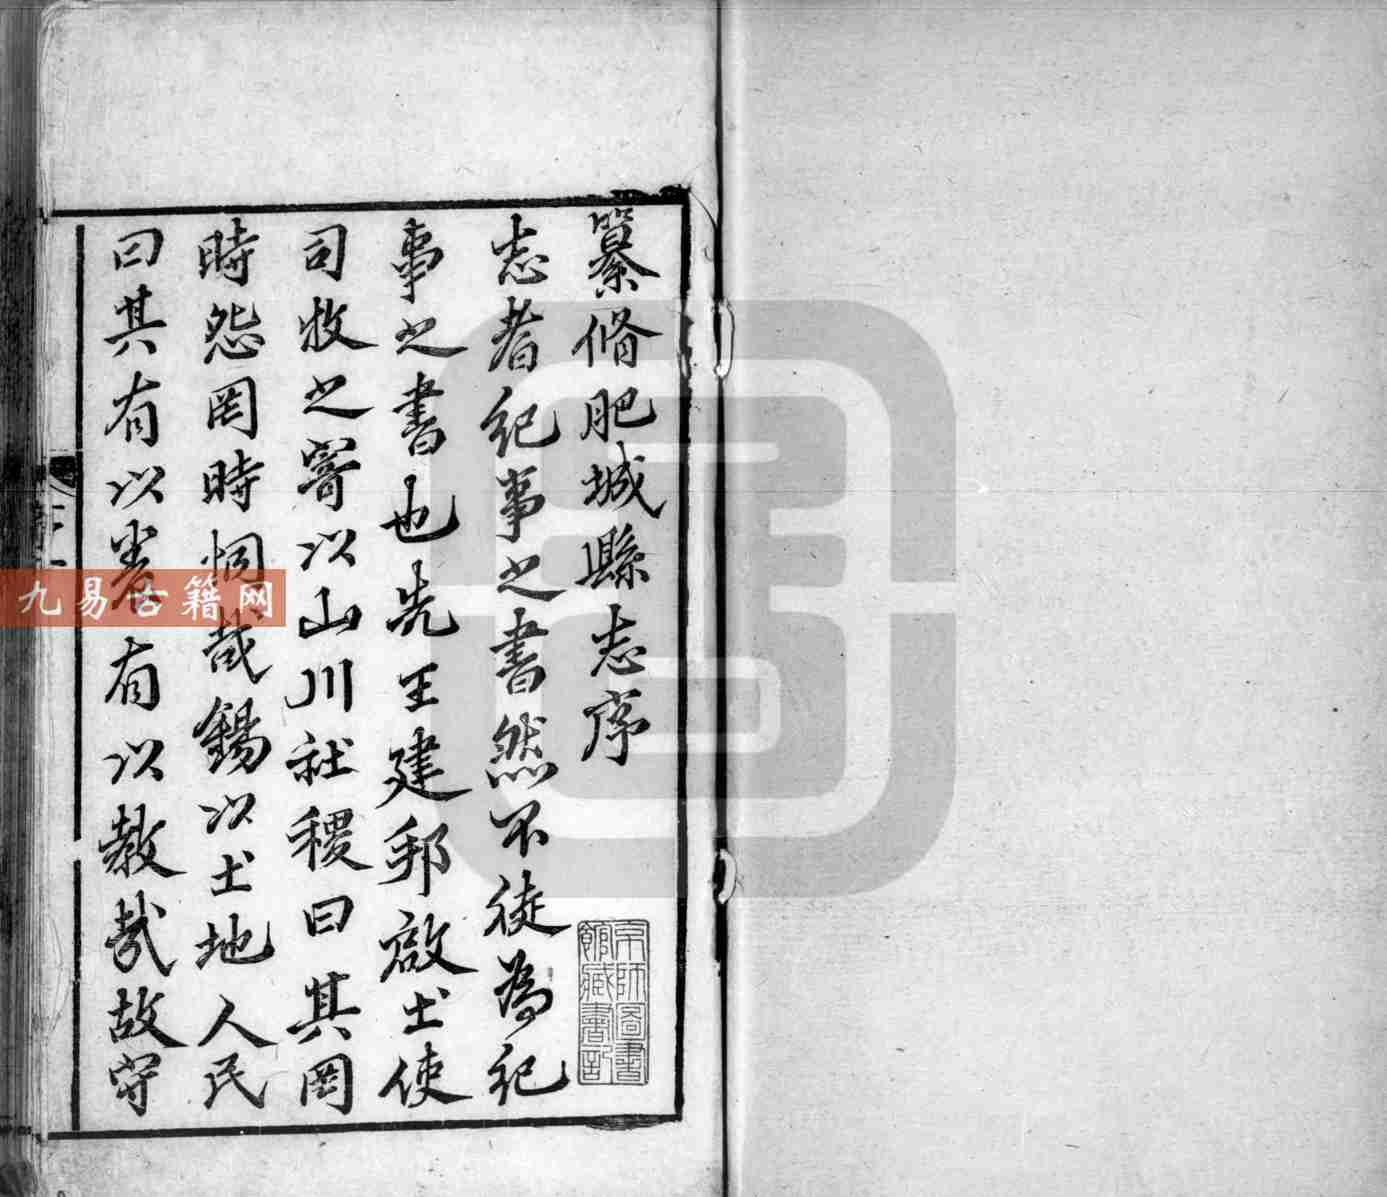 纂脩肥城縣志序
志者紀事之書然不徒為紀
事之書也先王建邦啟土使
司牧之寄以山川社稷曰其罔
時怨罔時恫哉錫以土地人民
曰其有以養有以教哉故守
京師圖書
館藏書記
九易古籍网